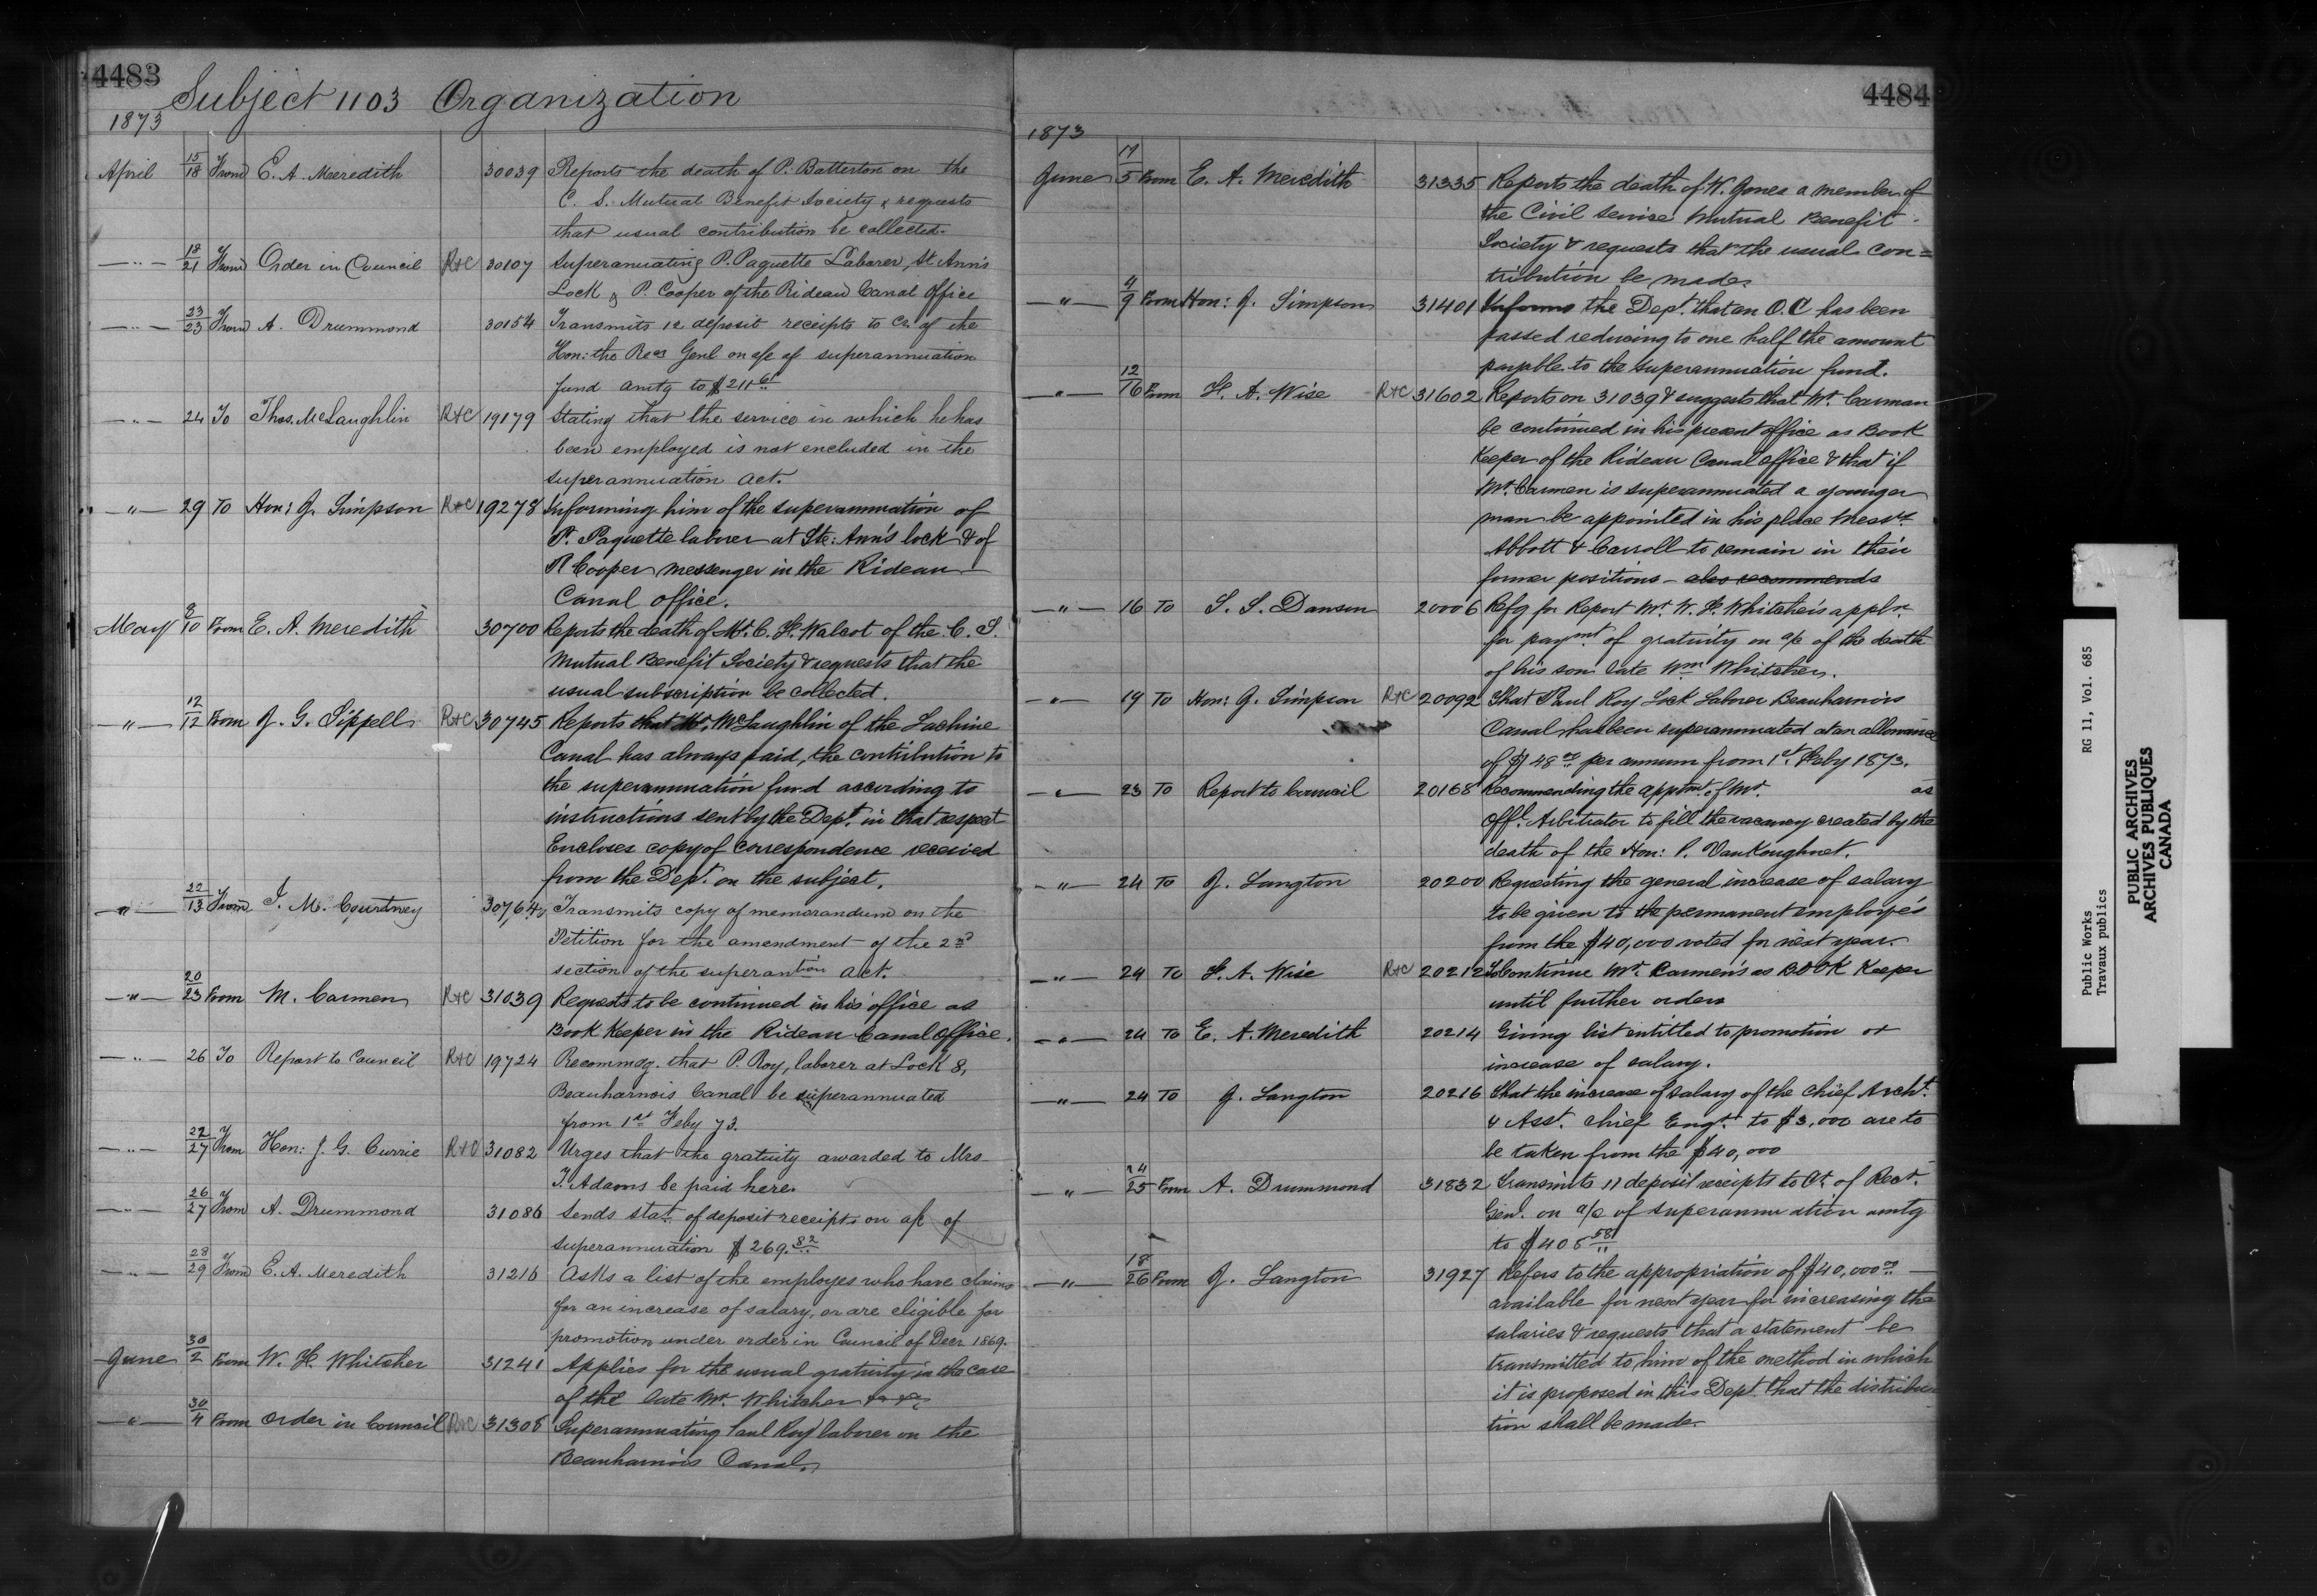 4483
Subject 1103 Organization
1873
April 15/18 From E. A. Meredith 30039 Reports the death of P. Batterton on the
C. S. Mutual Benefit Society & requests
that usual contribution be collected.
—"— 18/21 From Order in Council R+C 30107 Superanuating P. Paquette Laborer, St Ann's
Lock & P. Cooper of the Rideau Canal Office
—"— 23/23 From A. Drummond 30154 Transmits 12 deposit receipts to Cr. of the
Hon: the Rec Genl on a/c of superannuation
fund amtg to $211 61
—"— 24 To Thos. McLaughlin R+C 19179 Stating that the service in which he has
been employed is not encluded in the
superannuation act.
—"— 29 To Hon: J. Simpson R+C 19278 Informing him of the superannuation of
P. Paquette laborer at Ste: Ann's lock & of
P. Cooper messenger in the Rideau
Canal office.
May 8/10 From E. A. Meredith 30700 Reports the death of Mr. C. F. Walcot of the C. S.
Mutual Benefit Society & requests that the
usual subscription be collected.
—"— 12/12 From J. G. Sippell R+C 30745 Reports that Mr. McLaughlin of the Lachine
Canal has always paid, the contribution to
the superannuation fund according to
instructions sent by the Dept. in that respect
Encloses copy of correspondence received
from the Dept. on the subject.
—"— 22/13 From J. M. Courtney 30764 Transmits copy of memorandum on the
Petition for the amendment of the 2nd
section of the superantion act.
—"— 20/23 From M. Carmen R+C 31039 Requests to be continued in his office as
Book Keeper in the Rideau Canal Office.
—"— 26 To Report to Council R+C 19724 Recommdg. that P. Roy, laborer at Lock 8,
Beauharnois Canal be superannuated
from 1st Feby 73.
—"— 22/27 From Hon: J. G. Currie R+C 31082 Urges that the gratuity awarded to Mrs
T. Adams be paid here.
—"— 26/27 From A. Drummond 31086 Sends stat. of deposit receipts on a/c of
superannuation $269.82
—"— 28/29 From E. A. Meredith 31216 Asks a list of the employes who have claims
for an increase of salary, or are eligible for
promotion under order in Council of Decr 1869.
June 30/2 From W. F. Whitcher 31241 Applies for the usual gratuity in the case
of the late Mr. Whitcher
—"— 30/4 From Order in Council R+C 31308 Superannuating Paul Roy laborer on the
Beauharnois Canal.
4484
1873
June 17/5 From E. A. Meredith 31335 Reports the death of W. Jones a member of
the Civil Service Mutual Benefit
Society & requests that the usual con=
tribution be made.
—"— 4/9 From Hon: J. Simpson 31401 Informs the Dept. that an O.C has been
passed reducing to one half the amount
payable to the superannuation fund.
—"— 12/16 From F. A. Wise R+C 31602 Reports on 31039 & suggests that Mr. Carman
be continued in his present office as Book
Keeper of the Rideau Canal office & that if
Mr. Carmen is superannuated a younger
man be appointed in his place Messrs
Abbott & Carroll to remain in their
former positions – also recommends
—"— 16 To S. S. Danson 20006 Refg for Report Mr. W. F. Whitcher's appln.
for paymt of gratuity on a/c of the death
of his son late Wm Whitcher.
—"— 19 To Hon: J. Simpson R+C 20092 That Paul Roy Lock Laborer Beauharnois
Canal has been superannuated at an allowance
of $148 00 per annum from 1st. Feby 1873.
—"— 23 To Report to Council 20168 Recommending the appmt. of Mr. as
Offl. Arbitrator to fill the vacancy created by the
death of the Hon: P. VanKoughnet.
—"— 24 To J. Langton 20200 Requesting the general increase of salary
to be given to the permanent employés
from the $40,000 voted for next year.
—"— 24 To F. A. Wise R+C 20212 To continue Mr. Carmen's as Book Keeper
until further orders
—"— 24 To E. A. Meredith 20214 Giving list entitled to promotion or
increase of salary.
—"— 24 To J. Langton 20216 That the increase of salary of the Chief Archt.
& Asst. Chief Engr. to $3,000 are to
be taken from the $40,000
—"— 24/25 From A. Drummond 31832 Transmits 11 deposit receipts to Ct. of Recr.
Genl. on a/c of superannuation amtg
to $408 58
—"— 18/26 From J. Langton 31927 Refers to the appropriation of $40,000 00
available for next year for increasing the
salaries & requests that a statement be
transmitted to him of the method in which
it is proposed in this Dept. that the distribu
tion shall be made.
Public Works RG 11, Vol. 685
Travaux publics
PUBLIC ARCHIVES
ARCHIVES PUBLIQUES
CANADA